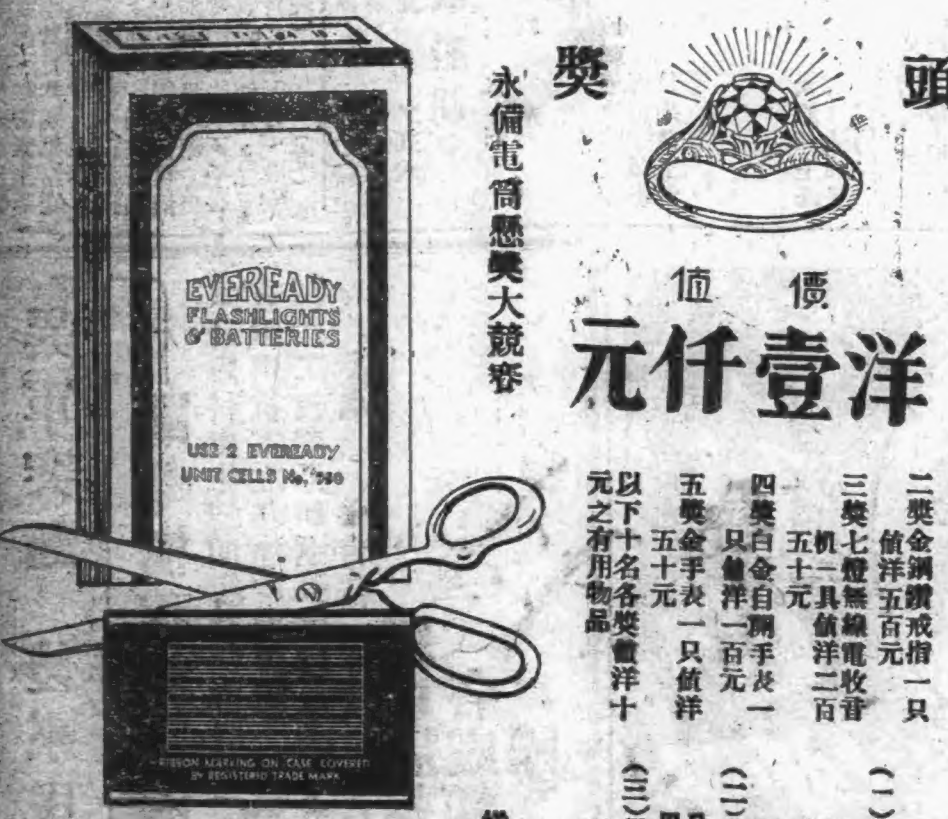 頭獎
價值
洋壹仟元
二獎金鋼鑽戒指一只
值洋五百元
三獎七燈無線電收音
机一具值洋二百
五十元
四獎白金自開手表一
只值洋一百元
五獎金手表一只值洋
五十元
以下十名各獎值洋十
元之有用物品
永備電筒懸獎大競賽
(一)
(二)
(三)
EVEREADY
FLASHLIGHTS
& BATTERIES
USE 2 EVEREADY
UNIT CELLS No. 950
RIBBON MARKING ON CASE COVERED
BY REGISTERED TRADE MARK